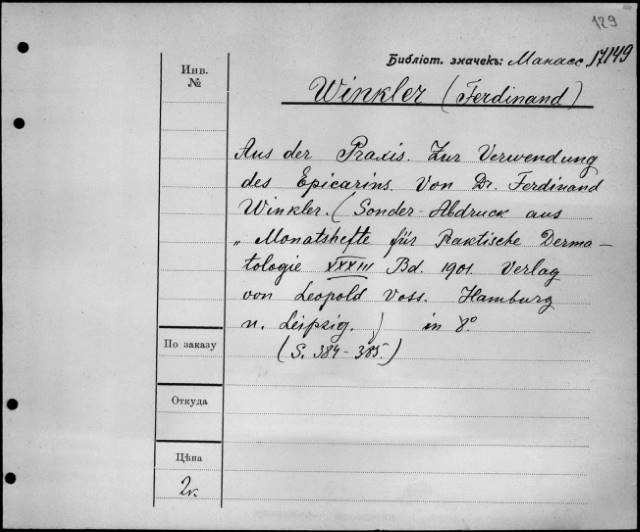 129
Библіот. значекъ: Манасс. 17149
Инв. №
Winkler (Ferdinand)
Aus der Praxis. Zur Verwendung
des Epicarins. Von Dr. Ferdinand
Winkler. (Sonder-Abdruck aus
„Monatshefte für Praktische Derma-
tologie XXXIII Bd. 1901. Verlag
von Leopold Voss. Hamburg
u. Leipzig.) in 8°
(S. 384-385.)
По заказу
Откуда
Цѣна
2к.